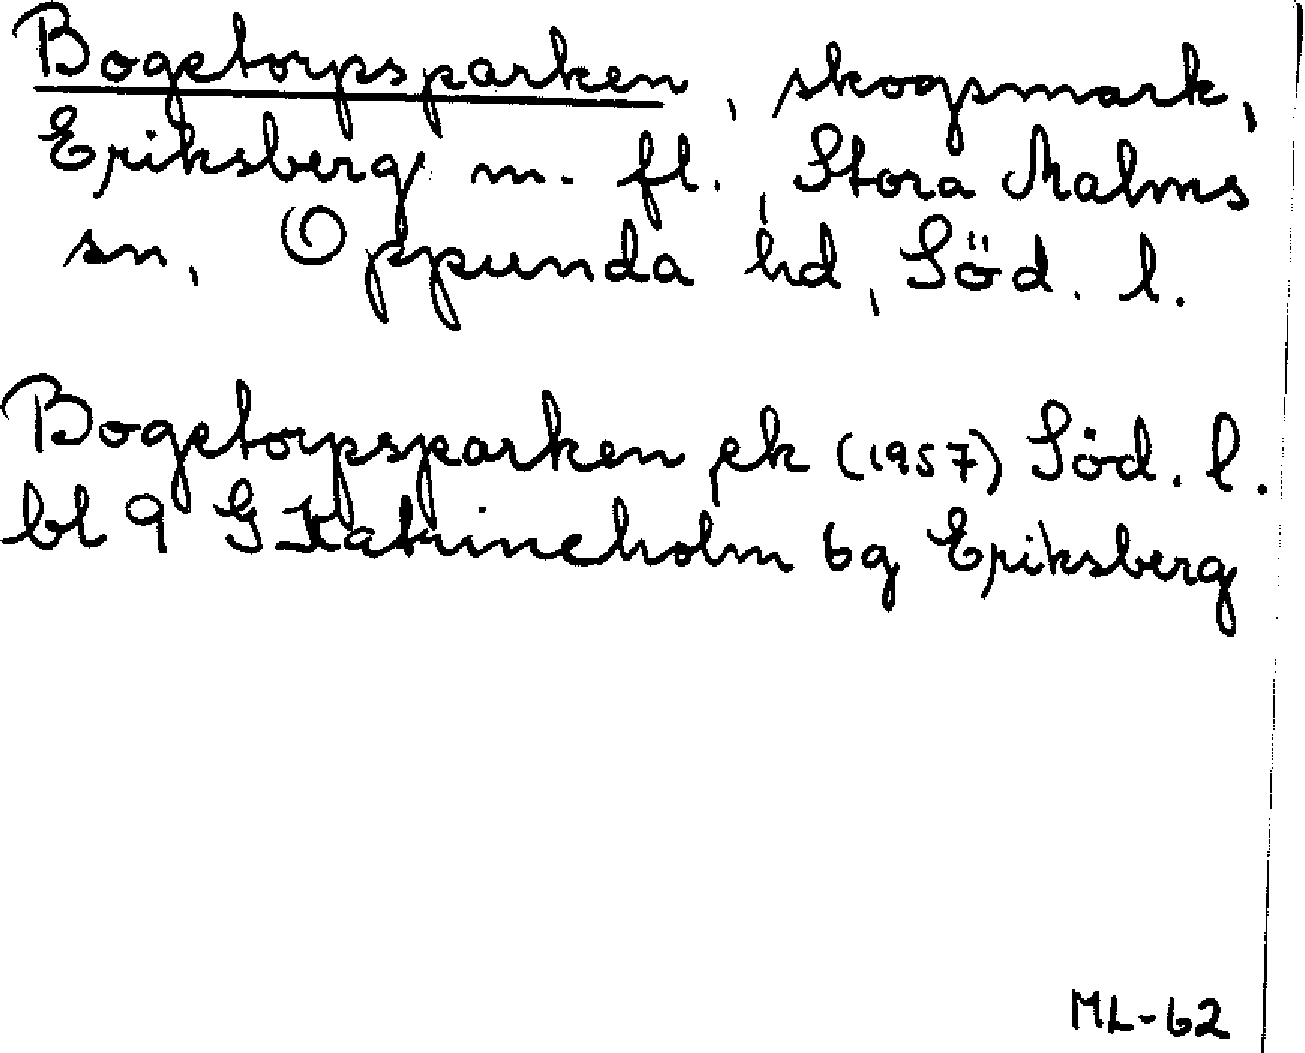 Bogetorpsparken, skogsmark,
Eriksberg m. fl., Stora Malms
sn, Oppunda hd, Söd. l.
Bogetorpsparken ek (1957) Söd. l.
bl 9 G Katrineholm 6g Eriksberg
ML-62